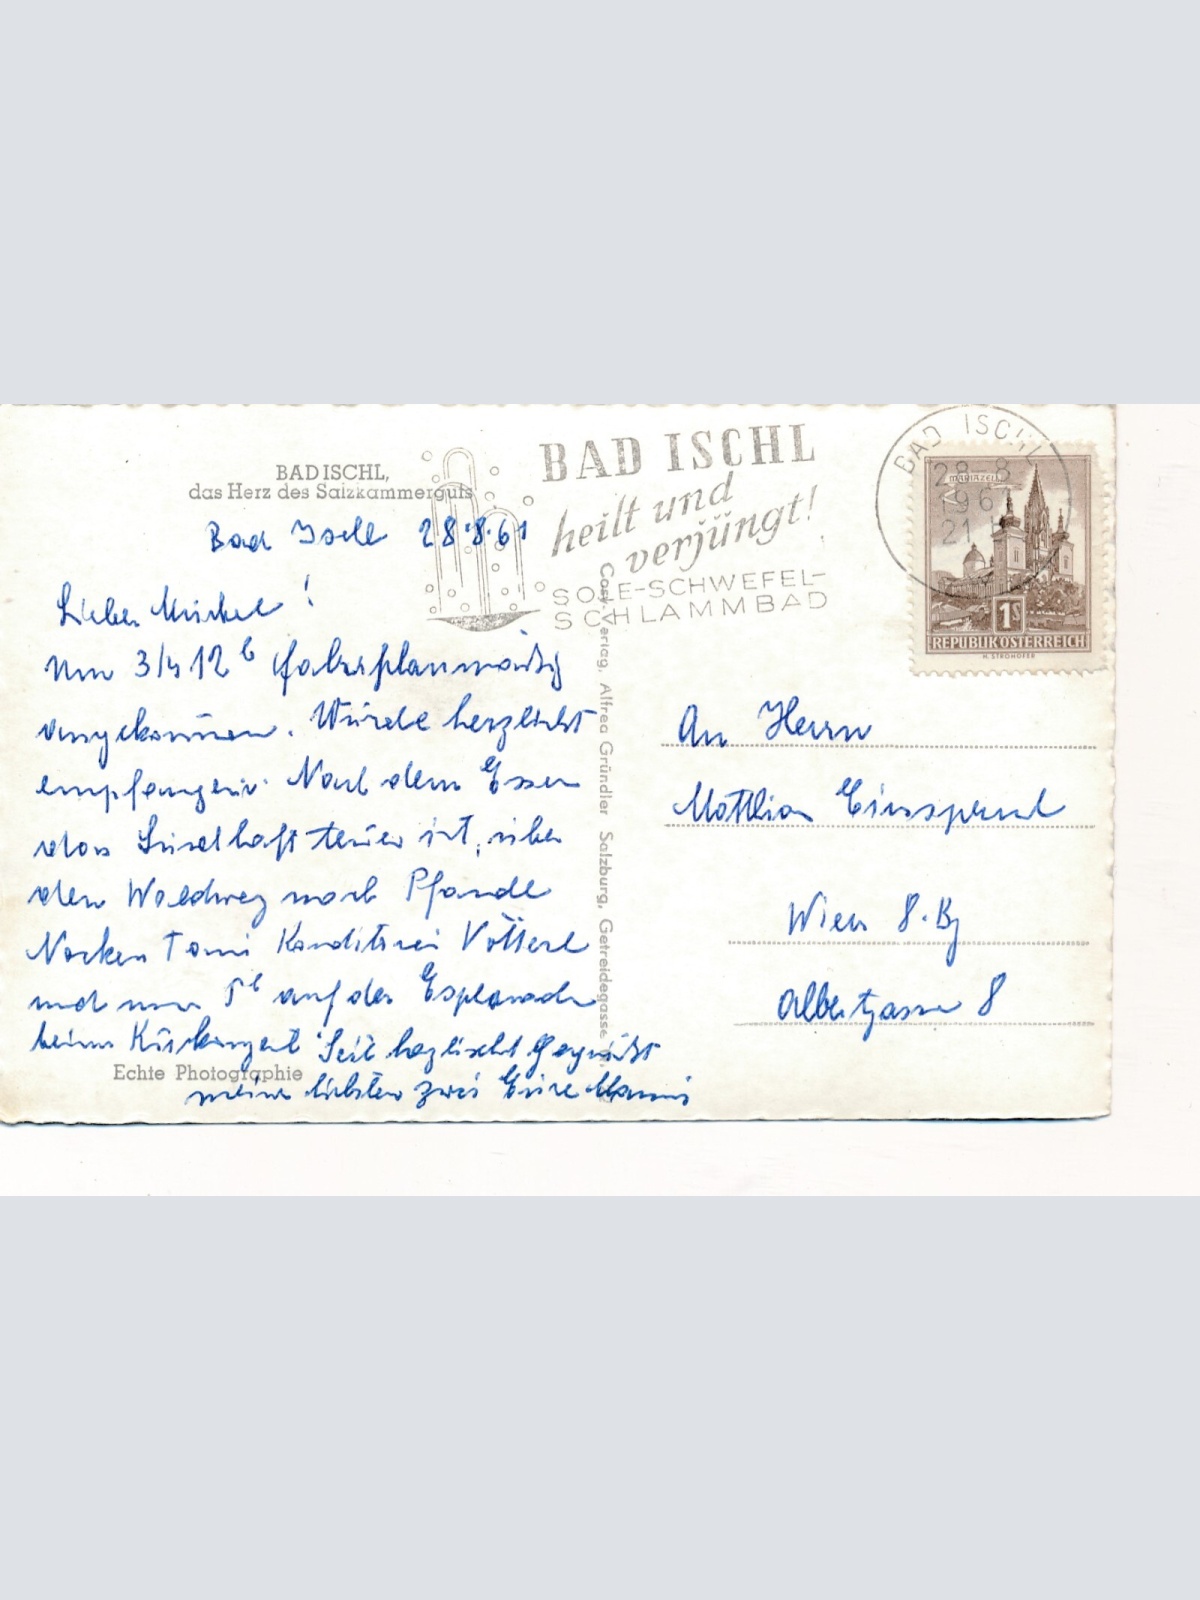 BAD ISCHL,
das Herz des Salzkammerguts
BAD ISCHL
heilt und
verjüngt!
SOLE-SCHWEFEL-
SCHLAMMBAD
BAD ISCHL
28-8
1961
21
MARIAZELL
1S
REPUBLIK ÖSTERREICH
H. STROHOFER
Bad Ischl 28.8.61
Lieber !
Um 3/4 12 h fahrplanmäßig
angekommen. Wurde herzlichst
empfangen. Nach dem Essen
das teuer ist, über
den Waldweg nach Pfandl
Konditorei
und um 5h auf der Esplanade
beim Kurkonzert Seit herzlichst gegrüßt
meine liebsten zwei Eure Mami
Echte Photographie
Cosy-Verlag, Alfred Gründler Salzburg, Getreidegasse
An Herrn
Wien 8. Bz
Albertgasse 8